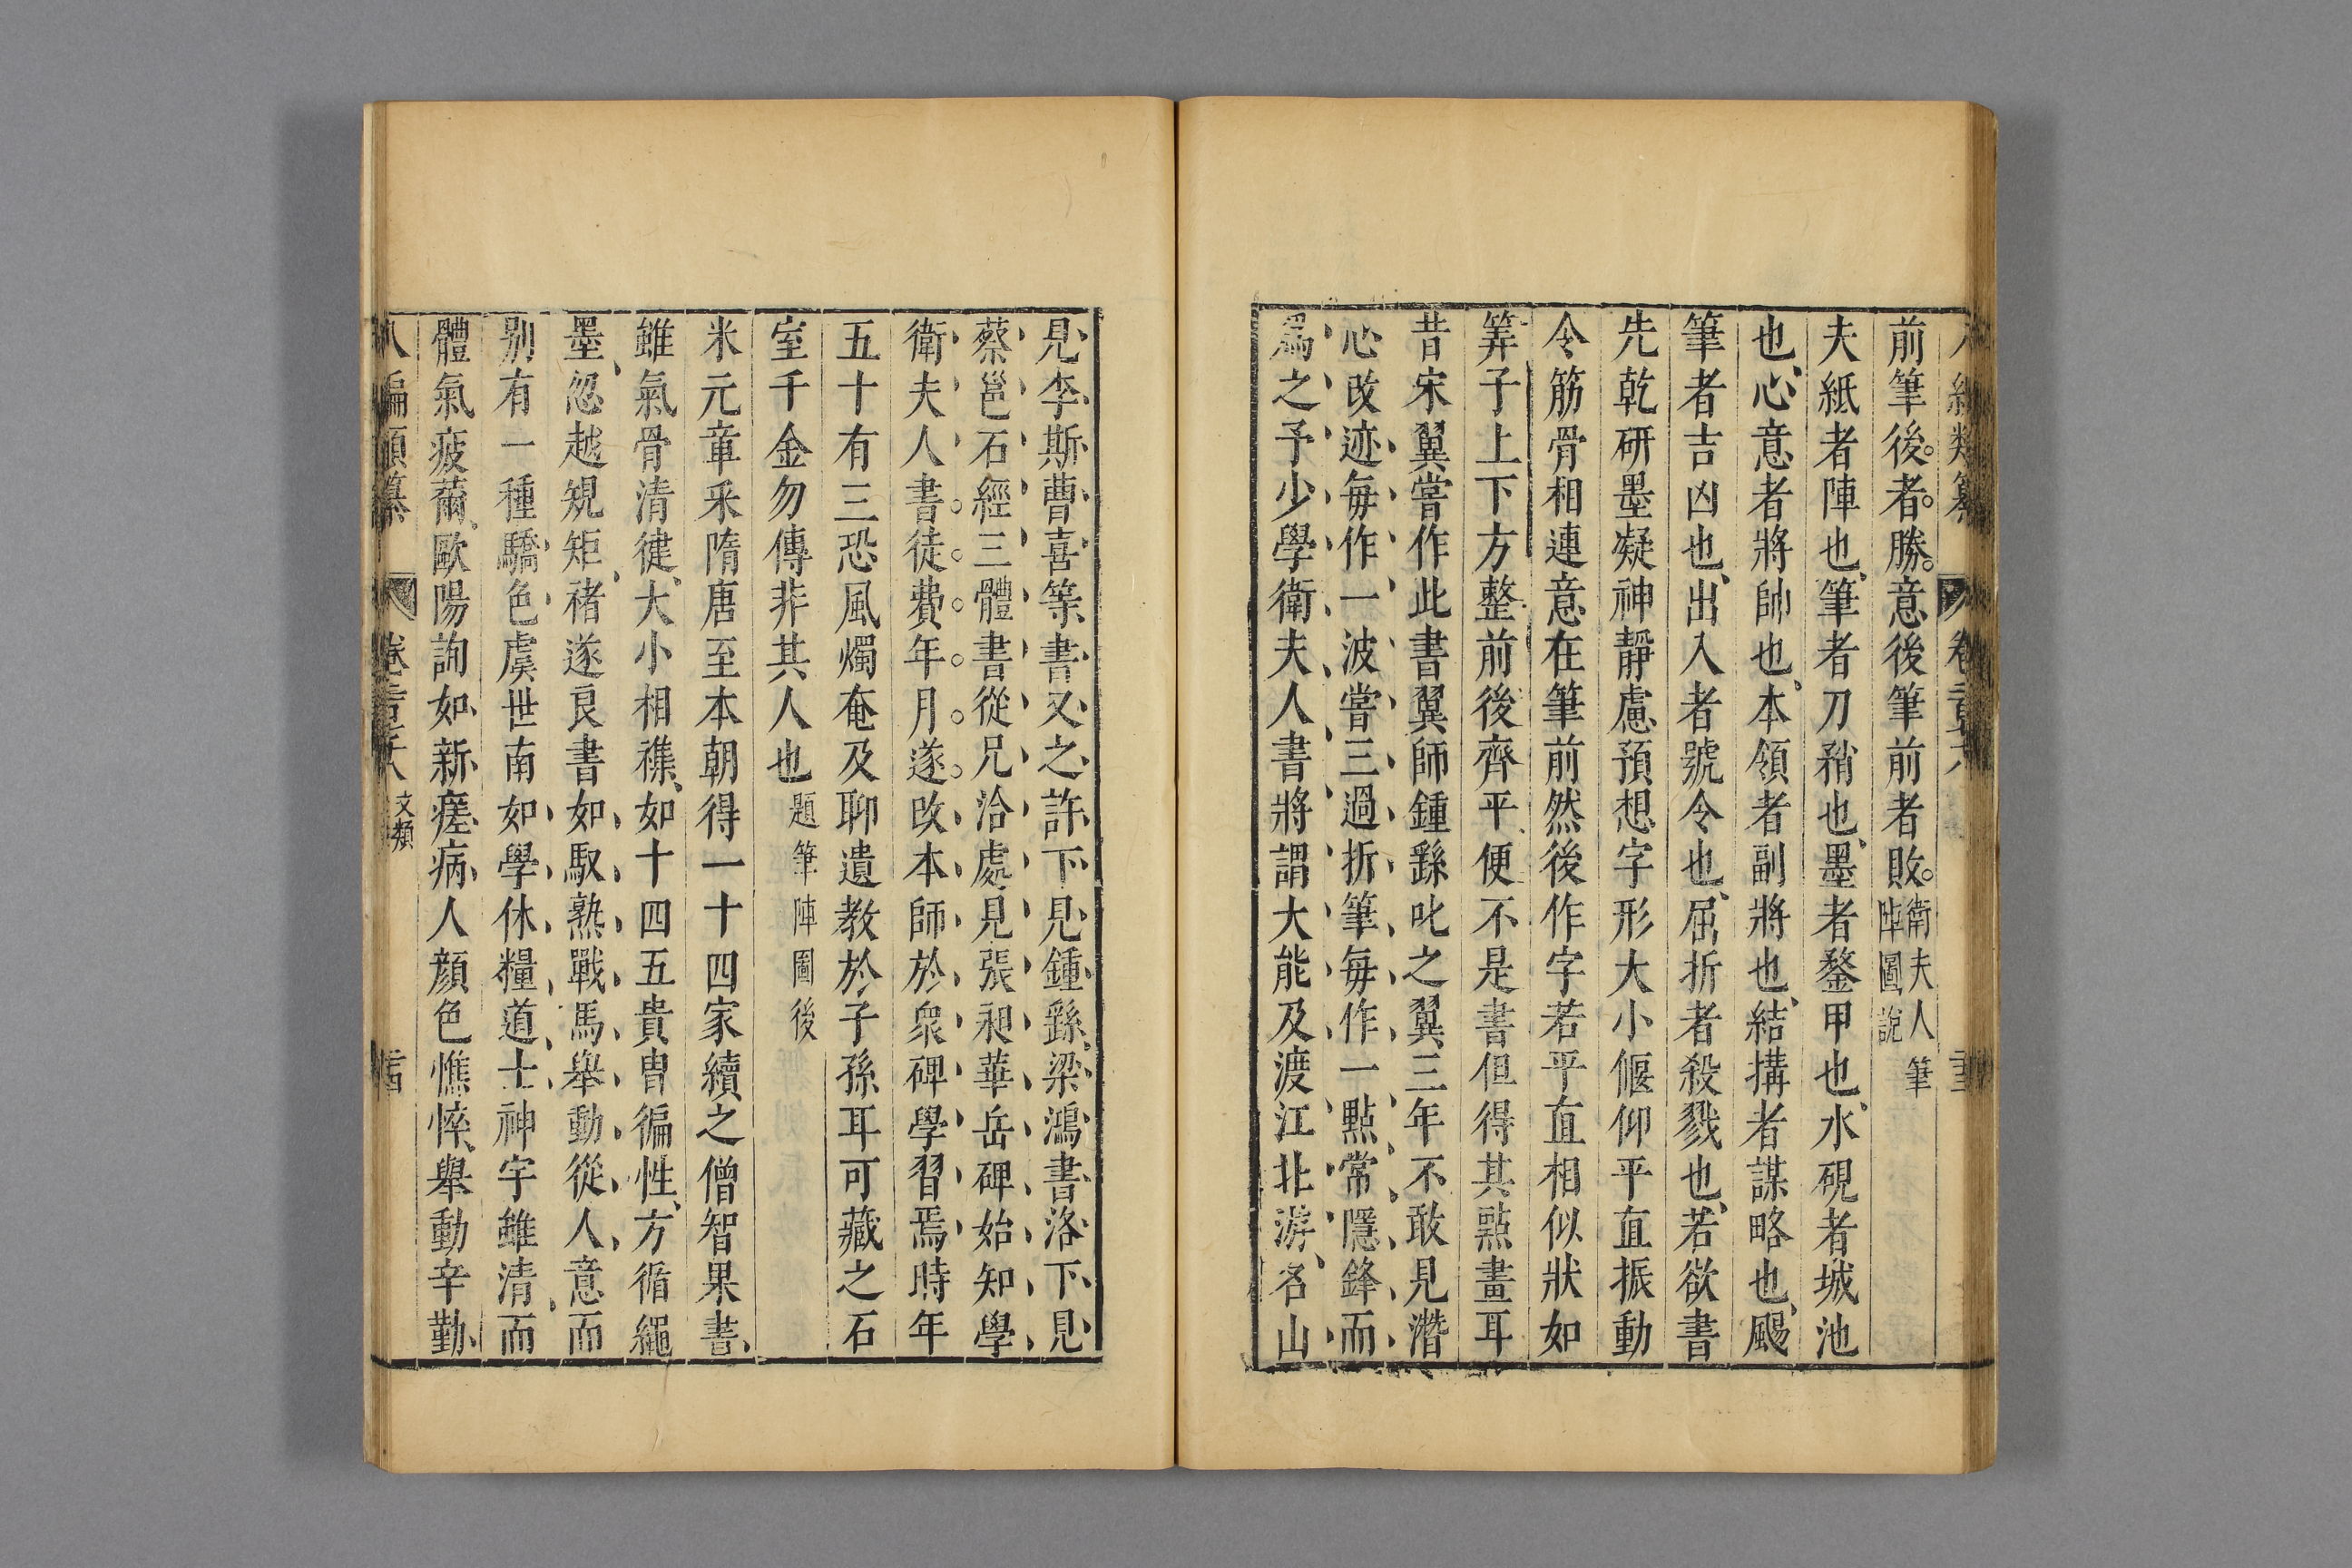 前筆後者勝意後筆前者敗衛夫人筆陣圖說
夫紙者陣也筆者刀矟也墨者鍪甲也水硯者城池
也心意者將帥也本領者副將也結搆者謀略也颺
筆者吉凶也出入者號令也屈折者殺戮也若欲書
先乾研墨凝神靜慮預想字形大小偃仰平直振動
令筋骨相連意在筆前然後作字若平直相似狀如
筭子上下方整前後齊平便不是書但得其點畫耳
昔宋翼嘗作此書翼師鍾繇叱之翼三年不敢見潛
心改迹每作一波嘗三過折筆每作一點常隱鋒而
爲之予少學衛夫人書將謂大能及渡江北游名山
見李斯曹喜等書又之許下見鍾繇梁鴻書洛下見
蔡邕石經三體書從兄洽處見張昶華岳碑始知學
衛夫人書徒費年月遂改本師於衆碑學習焉時年
五十有三恐風燭奄及聊遺教於子孫耳可藏之石
室千金勿傳非其人也題筆陣圖後
米元章采隋唐至本朝得一十四家續之僧智果書
雖氣骨清徤大小相襍如十四五貴冑徧性方循繩
墨忽越䂓矩褚遂良書如馭熟戰馬舉動從人意而
别有一種驕色虞世南如學休糧道士神宇雖清而
體氣疲薾歐陽詢如新瘥病人顔色憔悴舉動辛勤
編類纂 卷 文類